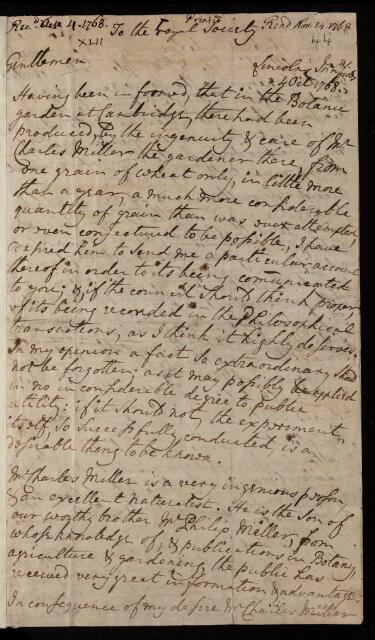 Rec.d Oct. 4. 1768.
Printed
Read Nov. 24. 1768
To the Royal Society.
XLII
44
Gentlemen
Lincolns Inn
4 Oct 1768.
Having been informed, that in the Botanic
garden at Cambridge, there had been
produced, by the ingenuity & care of Mr
Charles Miller the gardener there, from
one grain of wheat only, in little more
than a year, a much more considerable
quantity of grain than was ever attempted,
or even conjectured to be possible, I have
desired him to send me a particular account
thereof in order to its being communicated
to you; & if the council should think proper,
of its being recorded in the Philosophical
transactions, as I think it highly deserves.
In my opinion a fact so extraordinary should
not be forgotten: as it may possibly be applied
in no inconsiderable degree to public
utility: if it should not, the experiment
itself, so successfully conducted, is a
desirable thing to be known.
Mr Charles Miller is a very ingenious person
& an excellent naturalist. He is the Son of
our worthy brother Mr Philip Miller, from
whose knowledge of, & publications in Botany
agriculture & gardening, the public has
received very great information & advantage.
In consequence of my desire Mr Charles Miller